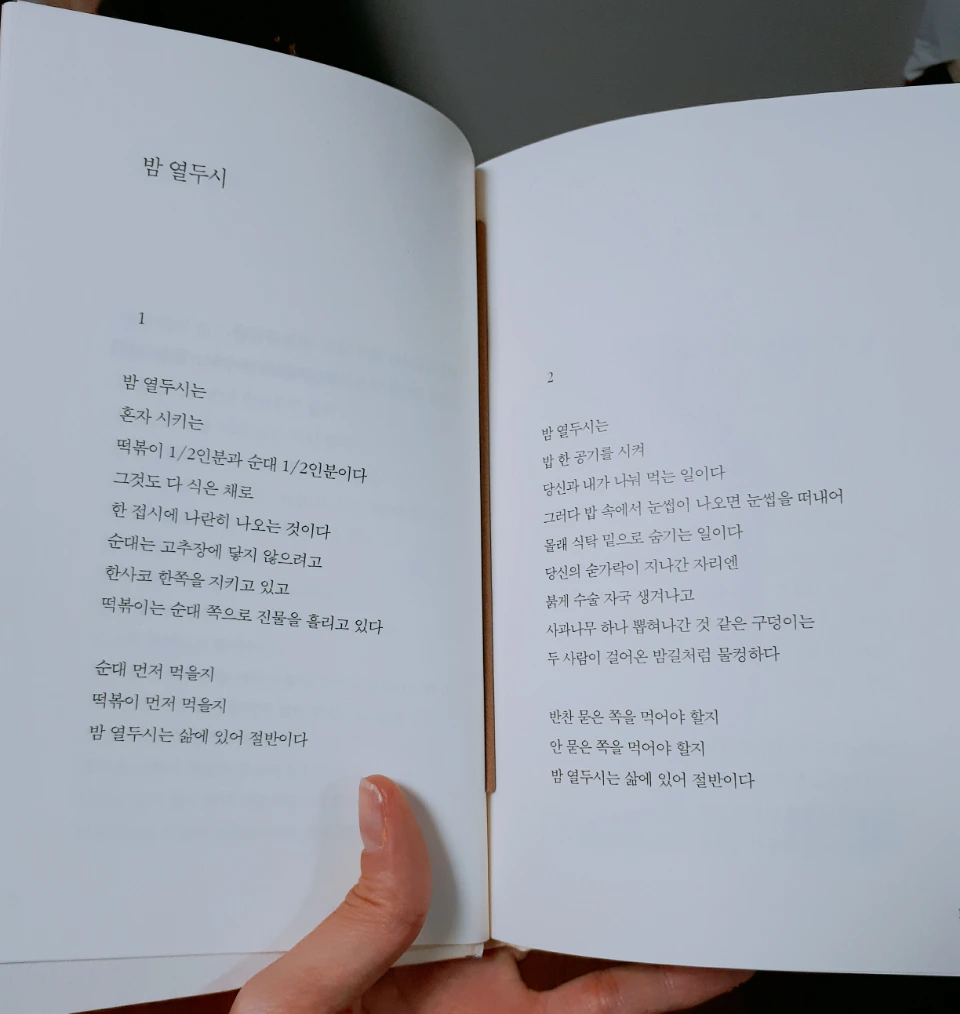 밤 열두시
1
밤 열두시는
혼자 시키는
떡볶이 1/2인분과 순대 1/2인분이다
그것도 다 식은 채로
한 접시에 나란히 나오는 것이다
순대는 고추장에 닿지 않으려고
한사코 한쪽을 지키고 있고
떡볶이는 순대 쪽으로 진물을 흘리고 있다
순대 먼저 먹을지
떡볶이 먼저 먹을지
밤 열두시는 삶에 있어 절반이다
2
밤 열두시는
밥 한 공기를 시켜
당신과 내가 나눠 먹는 일이다
그러다 밥 속에서 눈썹이 나오면 눈썹을 떠내어
몰래 식탁 밑으로 숨기는 일이다
당신의 숟가락이 지나간 자리엔
붉게 수술 자국 생겨나고
사과나무 하나 뽑혀나간 것 같은 구덩이는
두 사람이 걸어온 밤길처럼 물컹하다
반찬 묻은 쪽을 먹어야 할지
안 묻은 쪽을 먹어야 할지
밤 열두시는 삶에 있어 절반이다